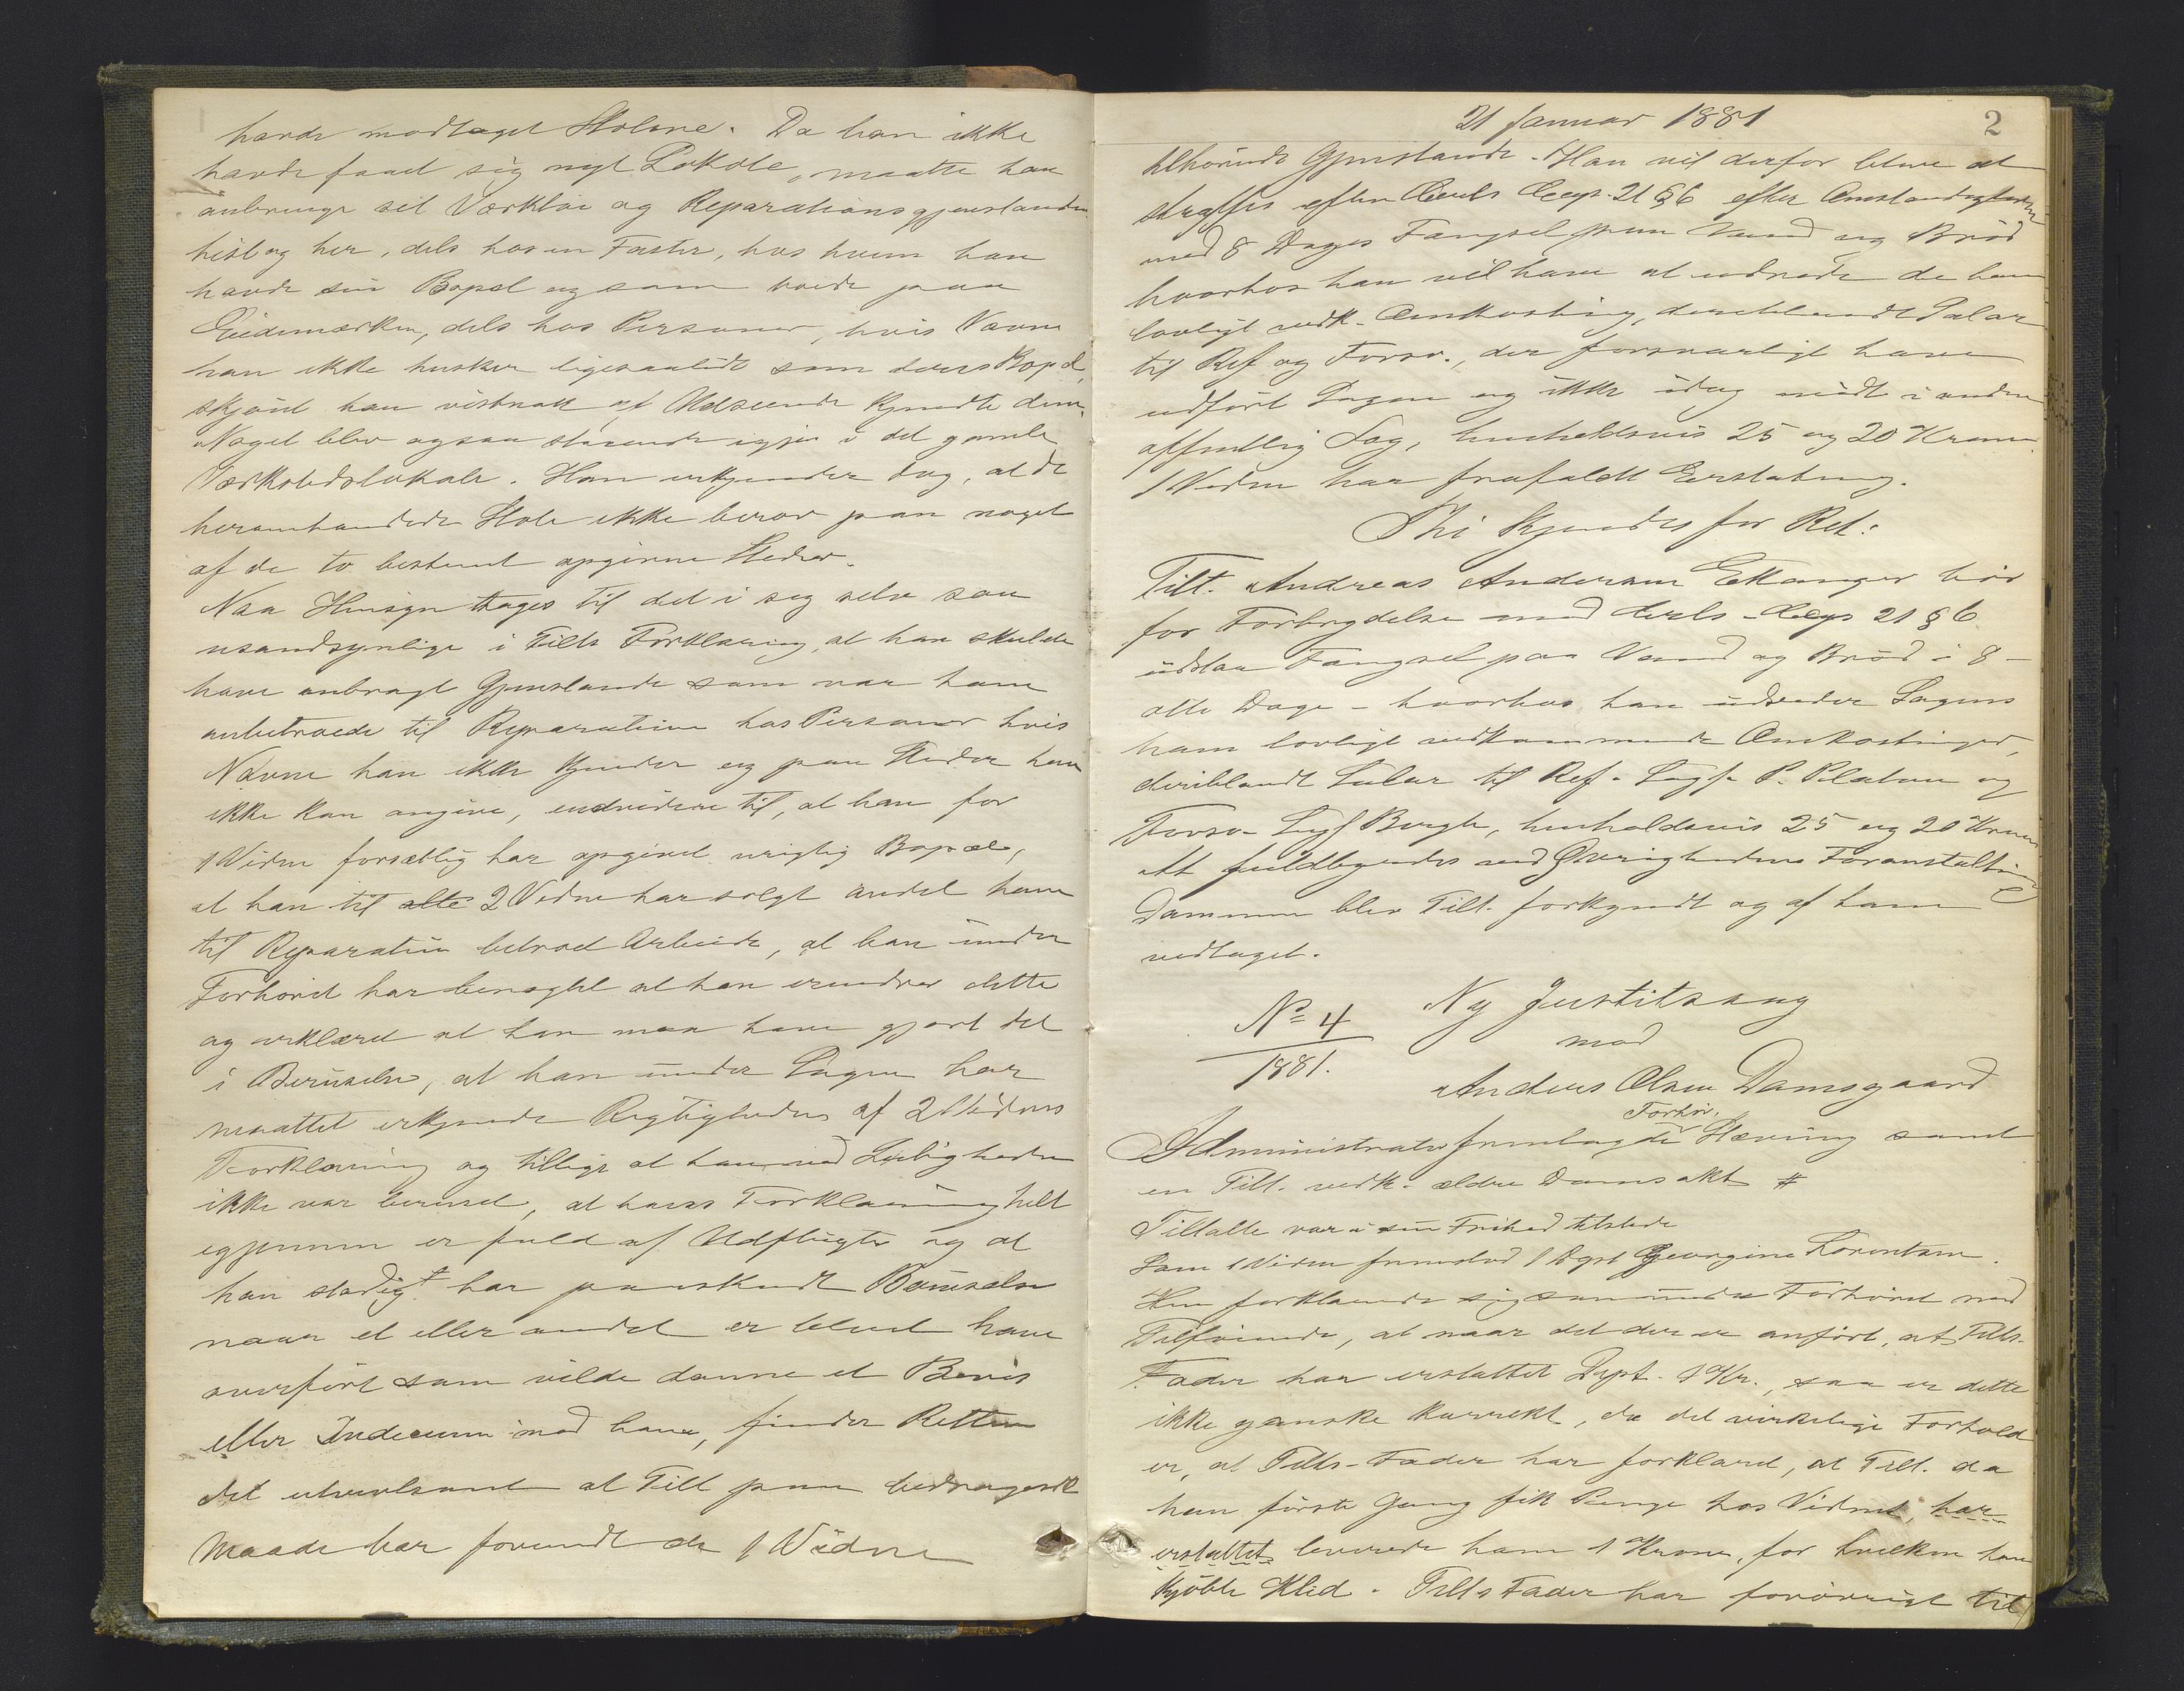 havde modtaget Stolene. Da han ikke
havde faaet sig nyt Lokale, maatte han
anbringe sit Værktøi og Reparationsgjenstanden
hist og her, dels hos en Faster, hos hvem han
havde sin Bopæl og som boede paa
Eidemarken, dels hos Personer, hvis Navne
han ikke husker ligesaalidt som deres Bopæl,
skjönt han vistnok af Udseende kjendte dem.
Noget blev ogsaa staaende igjen i det gamle
Værkstedslokale. Han erkjender dog, at de
heromhandlede Stole ikke beror paa noget
af de to bestemt opgivne Steder.
Naa Hensyn tages til det i sig selv saa
usandsynlige i Tilts Forklaring, at han skulde
have anbragt Gjenstande som var ham
anbetroede til Reparation hos Personer hvis
Navne han ikke kjender og paa Steder han
ikke kan angive, endvidere til, at han for
1 Vidne forsætlig har opgivet urigtig Bopæl,
at han til 2 Vidne har solgt andet ham
til Reparation betroet Arbeide, at han under
Forhöret har benegtet at han erindrer dette
og erklæret at han maa have gjort det
i Beruselse, at han under Sagen har
maattet erkjende Rigtigheden af 2 Vidnes
Forklaring og tillige at han ved Leiligheden
ikke var beruset, at hans Forklaring helt
igjennem er fuld af Udflugter og at
han stadigt har paaskudt Beruselse
naar et eller andet er blevet ham
overfört som vilde danne et Bevis
eller Indicium mod ham, finder Retten
det utvivlsomt at Tilt paa bedragersk
Maade har forvendt de 1 Vidne
21 Januar 1881
2
tilhörende Gjenstande. Han vil derfor blive at
straffes efter Crls Cap. 21 § 6 efter Omstændighederne
med 8 Dages Fængsel paa Vand og Bröd
hvorhos han vil have at udrede de ham
lovligt vedk. Omkostning, deriblandt Salær
til Ref og Forsv., der forsvarligt have
udfört Sagen og ikke idag mödt i anden
offentlig Sag, henholdsvis 25 og 20 Kroner.
1 Vidne har frafaldt Erstatning.
Thi kjendes for Ret:
Tilt. Andreas Andersen Ettanger bör
for Forbrydelse mod Crls Cap 21 § 6
udstaa Fængsel paa Vand og Bröd i 8 -
otte Dage - hvorhos han udreder Sagens
ham lovligt vedkommende Omkostninger,
deriblandt Salær til Ref. Sagf. P. Platou og
Forsv. Sagf Bergh, henholdsvis 25 og 20 Kroner
At fuldbyrdes ved Øvrighedens Foranstaltning
Dommen blev Tilt. forkyndt og af ham
vedtaget.
No 4
1881.
Ny Justitssag
mod
Anders Olsen Damsgaard
Forhör,
Administrator fremlagde Stævning samt
en Tilt. vedk. ældre Domsakt #
Tiltalte var i sin Frihed tilstede
Som 1 Vidne fremstod 1 Dept Georgine Lorentsen.
Hun forklarede sig som under Forhöret med
Tilföiende, at naar det der er anfört, at Tilts.
Fader har erstattet Dept. 1 Kr., saa er dette
ikke ganske korrekt, da det virkelige Forhold
er, at Tilts. Fader har forklaret, at Tilt. da
han förste Gang fik Penge hos Vidnet, har
erstattet leverede ham 1 Krone, for hvilken han
kjöbte Klid. Tilts Fader har forövrigt til